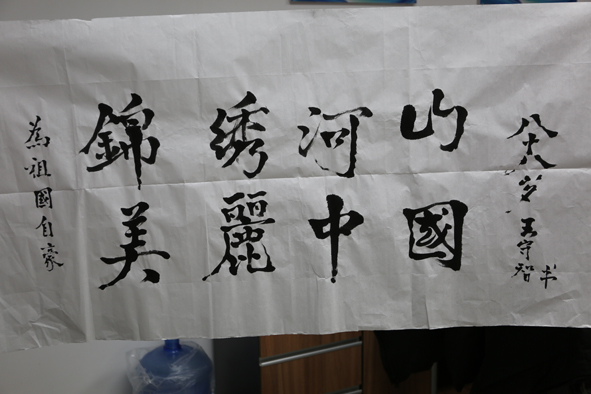 錦绣河山
美麗中國
為祖國自豪
八十八岁
王守智书